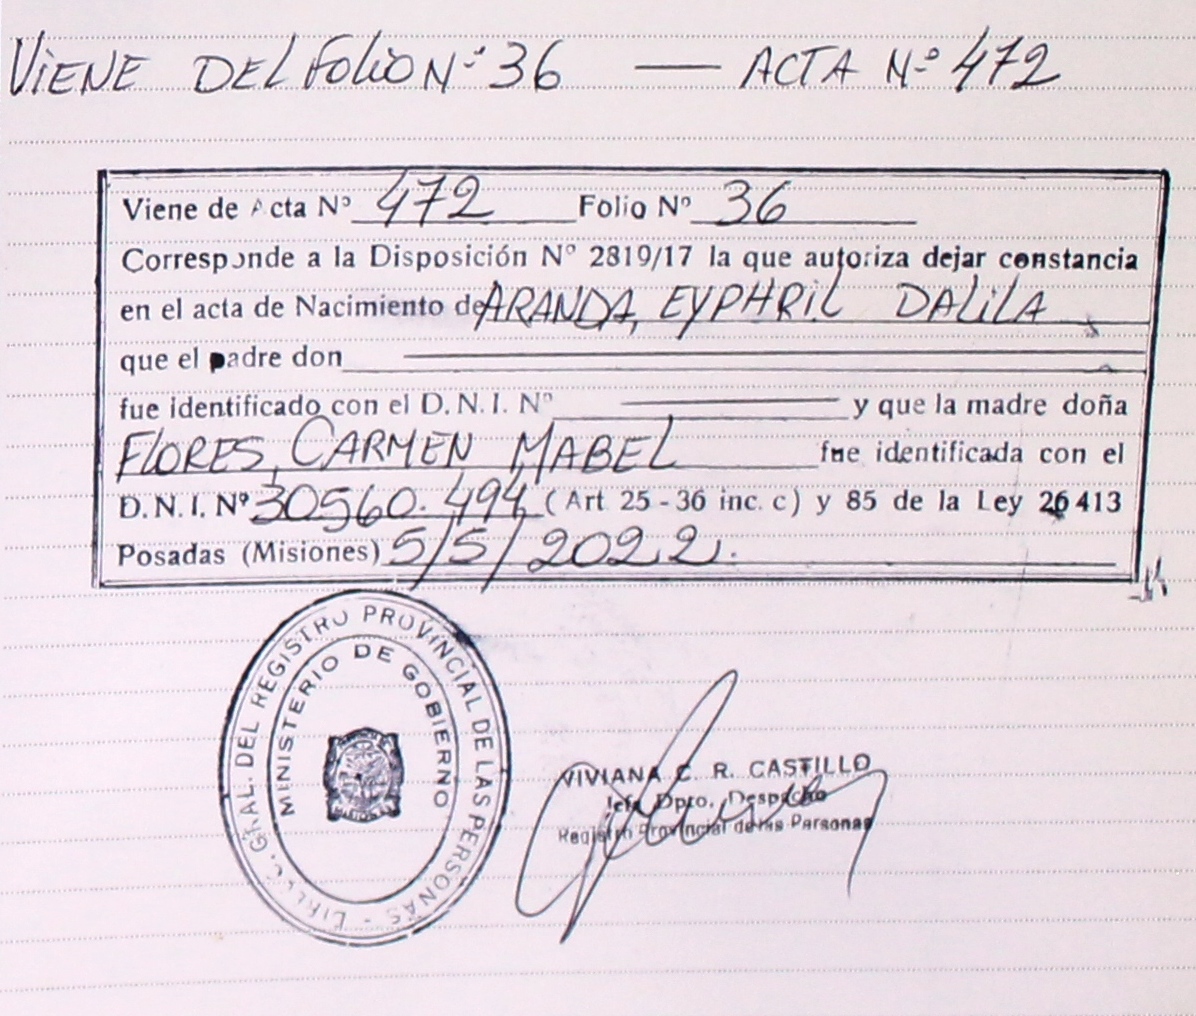 VIENE DEL FOLIO Nº 36 — ACTA Nº 472
Viene de Acta Nº 472 Folio Nº 36
Corresponde a la Disposición Nº 2819/17 la que autoriza dejar constancia
en el acta de Nacimiento de ARANDA, EYPHRIL DALILA
que el padre don
fue identificado con el D.N.I. Nº y que la madre doña
FLORES, CARMEN MABEL fue identificada con el
D.N.I. Nº 30560.494 (Art 25-36 inc. c) y 85 de la Ley 26413
Posadas (Misiones) 5/5/2022.
GRAL. DEL REGISTRO PROVINCIAL DE LAS PERSONAS -
MINISTERIO DE GOBIERNO
VIVIANA C. R. CASTILLO
Jefa Dpto. Despacho
Registro Provincial de las Personas